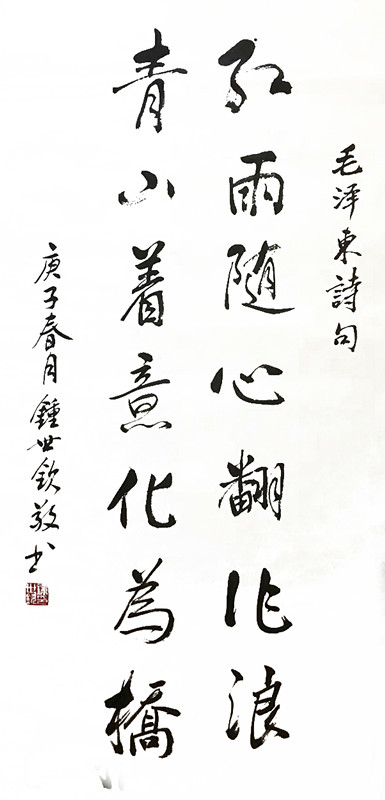 毛泽東詩句
紅雨随心翻作浪
青山着意化為橋
庚子春月鍾世欽敬书